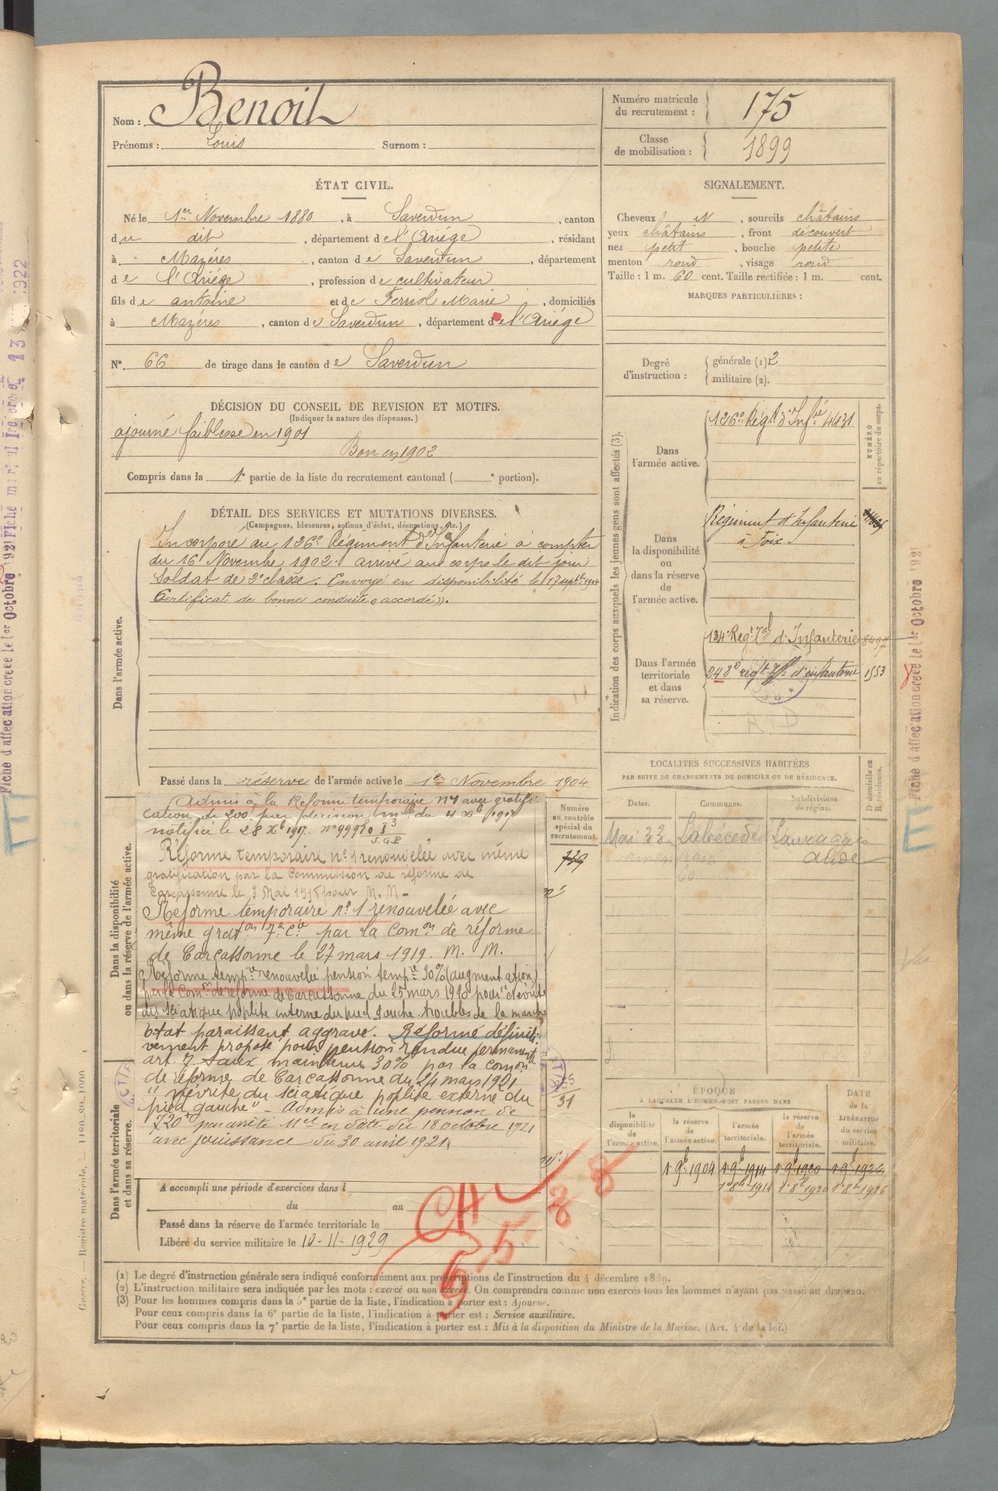 Nom : Benoit
Prénoms : Louis Surnom :
Numéro matricule du recrutement : 175
Classe de mobilisation : 1899
ÉTAT CIVIL.
Né le 1er Novembre 1880, à Saverdun, canton
du dit, département de l'Ariége, résidant
à Mazéres, canton de Saverdun, département
de l'Ariége, profession de cultivateur
fils de antoine et de Ferriol Marie, domiciliés
à Mazéres, canton de Saverdun, département de l'Ariége
N° 66 de tirage dans le canton de Saverdun
SIGNALEMENT.
Cheveux N, sourcils châtains
yeux châtains, front découvert
nez petit, bouche petite
menton rond, visage rond
Taille : 1 m. 60 cent. Taille rectifiée : 1 m. cent.
MARQUES PARTICULIÈRES :
Degré d'instruction : générale (1) 2
militaire (2).
DÉCISION DU CONSEIL DE REVISION ET MOTIFS.
(Indiquer la nature des dispenses.)
ajourné faiblesse en 1901
Bon en 1902
Compris dans la 1e partie de la liste du recrutement cantonal ( e portion).
DÉTAIL DES SERVICES ET MUTATIONS DIVERSES.
(Campagnes, blessures, actions d'éclat, décorations, etc.)
Dans l'armée active.
Incorporé au 126e Régiment d'Infanterie a compter
du 16 Novembre 1902. arrivé au corps le dit jour
Soldat de 2e classe. Envoyé en disponibilité le 17 sept 1904
Certificat de bonne conduite "accordé".
Passé dans la réserve de l'armée active le 1er Novembre 1904
Indication des corps auxquels les jeunes gens sont affectés (3).
NUMÉRO au répertoire du corps.
Dans l'armée active.
126e Régt d'Infie 4431
Dans la disponibilité ou dans la réserve de l'armée active.
Régiment d'Infanterie
à Foix.
Dans l'armée territoriale et dans sa réserve.
134e Regt Tal d'Infanterie 8497
248e regt d'infanterie 1553
Dans la disponibilité ou dans la réserve de l'armée active.
Admis à la Reforme temporaire n°1 avec gratifi-
cation de 200f par décision du 4 Xe 1917
notifiée le 28 Xe 1917.
Réforme temporaire n°1 renouvelée avec même
gratification par la commission de réforme de
Carcassonne le 3 Mai 1918
Reforme temporaire n°1 renouvelée avec
même gratон par la Comon de réforme
de Carcassonne le 27 mars 1919. M. M.
Réforme tempre renouvelée pension tempre 30% (augmentation)
par la Comon de réforme de Carcassonne du 25 mars 1920 pour "névrite
du sciatique poplité interne du pied gauche troubles de la marche
État paraissant aggravé. Réformé définiti-
vement proposé pour pension rendue permanente
art. 7 taux maintenu 30% par la comon
de réforme de Carcassonne du 24 mars 1921
"névrite du sciatique poplité externe du
pied gauche" - Admis à une pension de
720f par arrêté Mel en date du 18 octobre 1921
avec jouissance du 30 avril 1921
Numéro au contrôle spécial du recrutement.
729
31
LOCALITÉS SUCCESSIVES HABITÉES
PAR SUITE DE CHANGEMENTS DE DOMICILE OU DE RÉSIDENCE.
Dates. Communes. Subdivisions de région. Domicile ou Résidence.
Aude
ÉPOQUE
À LAQUELLE L'HOMME DOIT PASSER DANS
DATE de la LIBÉRATION du service militaire.
la disponibilité de l'armée active.
la réserve de l'armée active.
l'armée territoriale.
la réserve de l'armée territoriale.
1 9b 1904 1 9b 1914 1 9b 1920 1 9b 1926
1er 8b 1914 1er 8b 1920 1er 8b 1926
Dans l'armée territoriale et dans sa réserve.
A accompli une période d'exercices dans l
du au
Passé dans la réserve de l'armée territoriale le
Libéré du service militaire le 10-11-1929
CH
5-5-88
(1) Le degré d'instruction générale sera indiqué conformément aux prescriptions de l'instruction du 4 décembre 1889.
(2) L'instruction militaire sera indiquée par les mots : exercé ou non exercé. On comprendra comme non exercés tous les hommes n'ayant pas passé au drapeau.
(3) Pour les hommes compris dans la 5e partie de la liste, l'indication à porter est : Ajourné.
Pour ceux compris dans la 6e partie de la liste, l'indication à porter est : Service auxiliaire.
Pour ceux compris dans la 7e partie de la liste, l'indication à porter est : Mis à la disposition du Ministre de la Marine. (Art. 4 de la loi.)
Fiche d'affectation créée le 1er Octobre 1921
Fiche d'affectation créée le 1er Octobre 1921